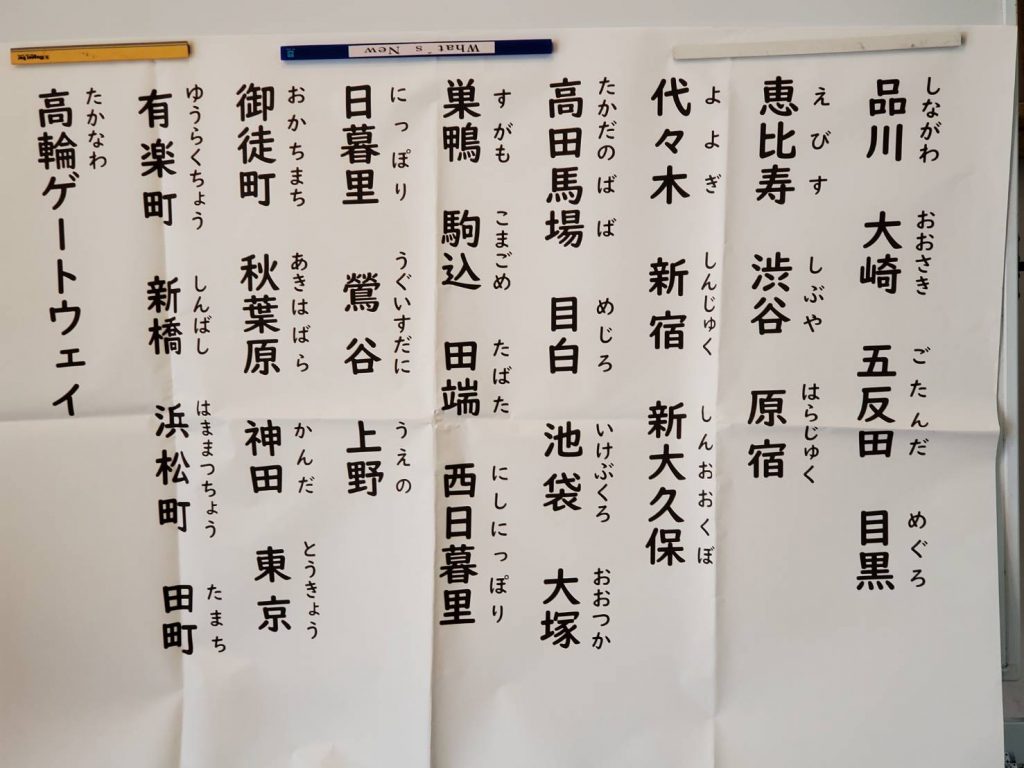 品川 大崎 五反田 目黒
しながわ おおさき ごたんだ めぐろ
恵比寿 渋谷 原宿
えびす しぶや はらじゅく
代々木 新宿 新大久保
よよぎ しんじゅく しんおおくぼ
高田馬場 目白 池袋 大塚
たかだのばば めじろ いけぶくろ おおつか
巣鴨 駒込 田端 西日暮里
すがも こまごめ たばた にしにっぽり
日暮里 鶯谷 上野
にっぽり うぐいすだに うえの
御徒町 秋葉原 神田 東京
おかちまち あきはばら かんだ とうきょう
有楽町 新橋 浜松町 田町
ゆうらくちょう しんばし はままつちょう たまち
高輪ゲートウェイ
たかなわ
What's New